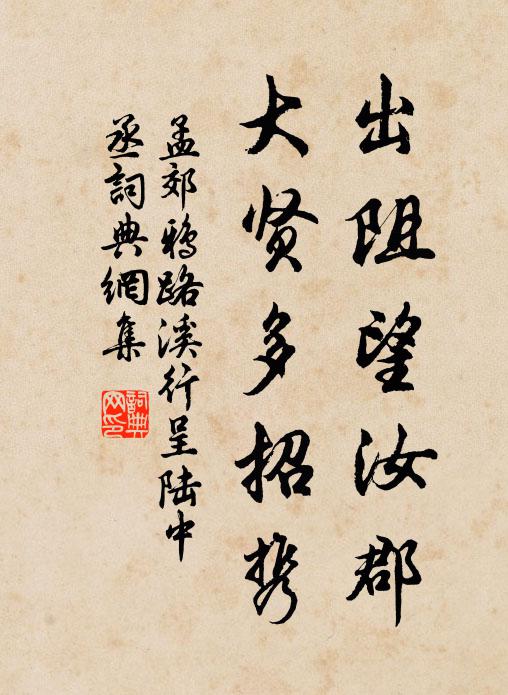 出阻望汝郡
大贤多招携
孟郊鸦路溪行呈陆中
丞詞典網集
詞典
网印